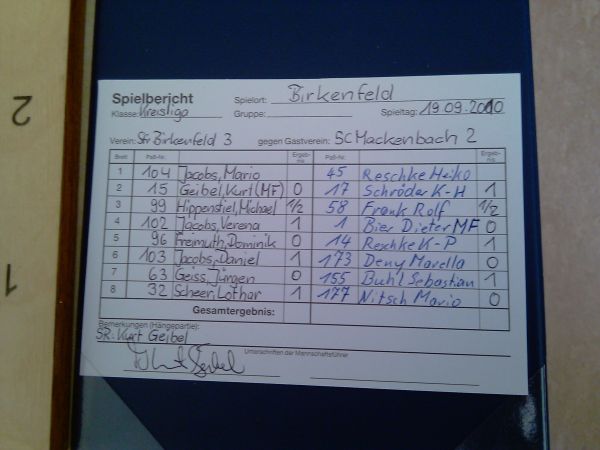 Spielbericht Spielort: Birkenfeld
Klasse: Kreisliga Gruppe: Spieltag: 19.09.2010
Verein: Sfr Birkenfeld 3 gegen Gastverein: SC Mackenbach 2
Brett Paß-Nr. Ergebnis Paß-Nr. Ergebnis
1 104 Jacobs, Mario 45 Reschke Heiko
2 15 Geibel, Kurt (MF) 0 17 Schröder K-H 1
3 99 Hippenstiel, Michael 1/2 58 Frank Rolf 1/2
4 102 Jacobs, Verena 1 1 Bier Dieter MF 0
5 96 Freimuth, Dominik 0 14 Reschke K-P 1
6 103 Jacobs, Daniel 1 173 Deny Marella 0
7 63 Geiss, Jürgen 0 155 Buhl Sebastian 1
8 32 Scheer, Lothar 1 177 Nitsch Mario 0
Gesamtergebnis:
Bemerkungen (Hängepartie):
SR: Kurt Geibel
Unterschriften der Mannschaftsführer
Kurt Geibel
2
1